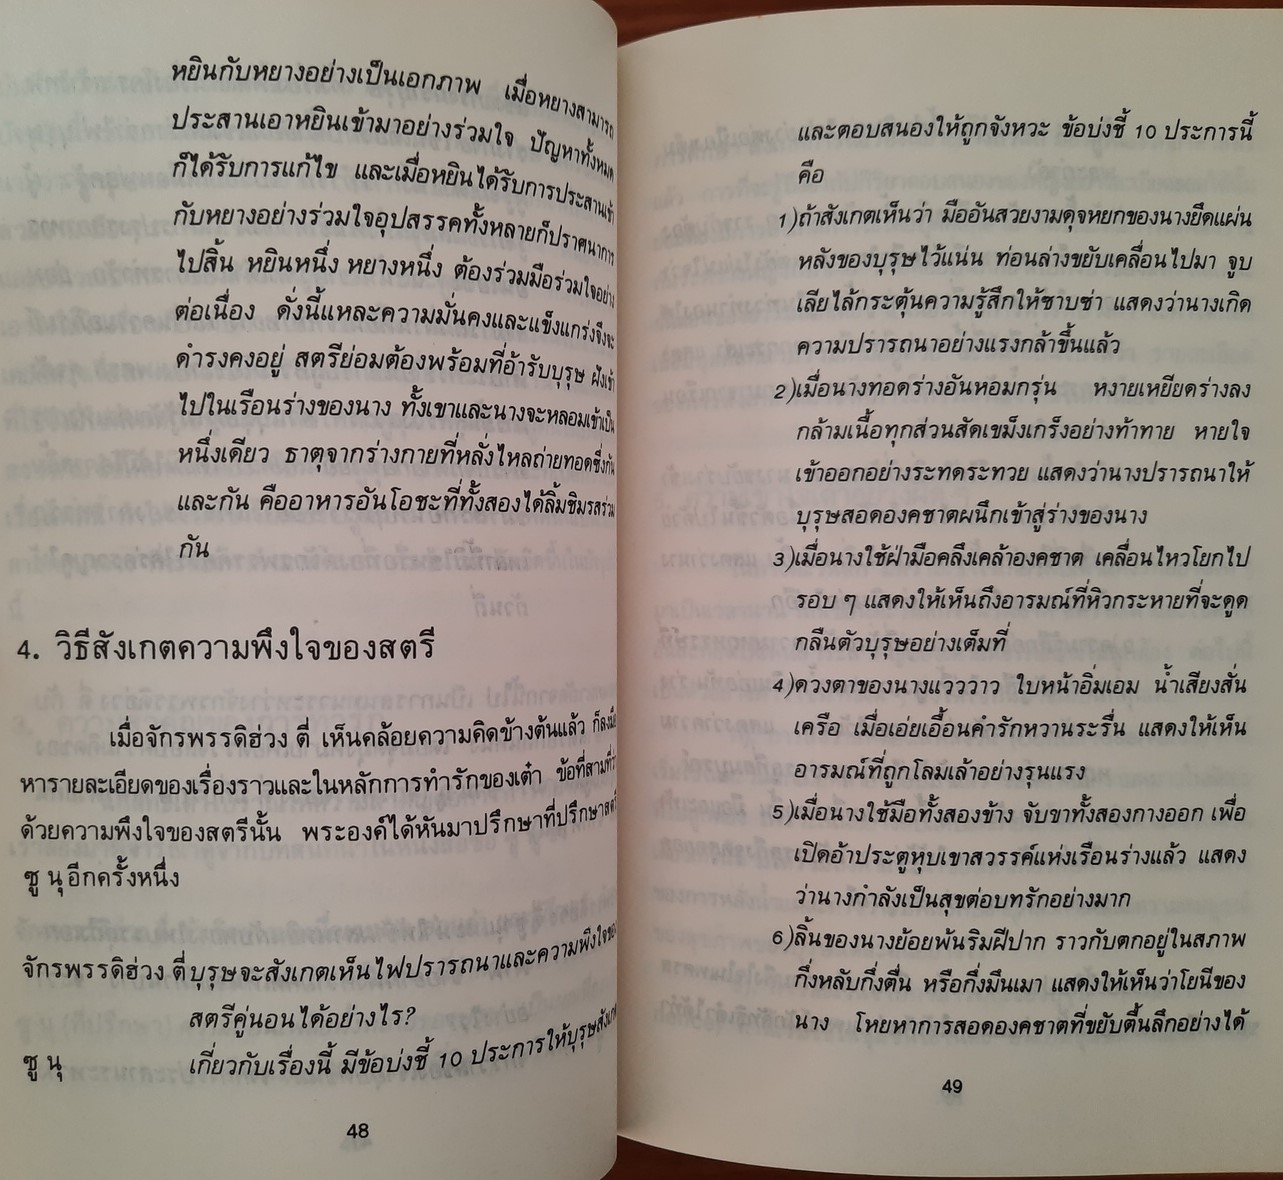 หยินกับหยางอย่างเป็นเอกภาพ เมื่อหยางสามารถ
ประสานเอาหยินเข้ามาอย่างร่วมใจ ปัญหาทั้งหมด
ก็ได้รับการแก้ไข และเมื่อหยินได้รับการประสานเข้า
กับหยางอย่างร่วมใจอุปสรรคทั้งหลายก็ปราศนาการ
ไปสิ้น หยินหนึ่ง หยางหนึ่ง ต้องร่วมมือร่วมใจอย่าง
ต่อเนื่อง ดั่งนี้แหละความมั่นคงและแข็งแกร่งจึงจะ
ดำรงคงอยู่ สตรีย่อมต้องพร้อมที่อ้ารับบุรุษ ฝังเข้า
ไปในเรือนร่างของนาง ทั้งเขาและนางจะหลอมเข้าเป็น
หนึ่งเดียว ธาตุจากร่างกายที่หลั่งไหลถ่ายทอดซึ่งกัน
และกัน คืออาหารอันโอชะที่ทั้งสองได้ลิ้มชิมรสร่วม
กัน
4. วิธีสังเกตความพึงใจของสตรี
เมื่อจักรพรรดิฮ่วง ตี่ เห็นคล้อยความคิดข้างต้นแล้ว ก็ลงมือ
หารายละเอียดของเรื่องราวและในหลักการทำรักของเต๋า ข้อที่สามที่ว่า
ด้วยความพึงใจของสตรีนั้น พระองค์ได้หันมาปรึกษาที่ปรึกษาสตรี
ซู นุ อีกครั้งหนึ่ง
จักรพรรดิฮ่วง ตี่ บุรุษจะสังเกตเห็นไฟปรารถนาและความพึงใจของ
สตรีคู่นอนได้อย่างไร?
ซู นุ เกี่ยวกับเรื่องนี้ มีข้อบ่งชี้ 10 ประการให้บุรุษสังเกต
48
และตอบสนองให้ถูกจังหวะ ข้อบ่งชี้ 10 ประการนี้
คือ
1)ถ้าสังเกตเห็นว่า มืออันสวยงามดุจหยกของนางยึดแผ่น
หลังของบุรุษไว้แน่น ท่อนล่างขยับเคลื่อนไปมา จูบ
เลียไล้กระตุ้นความรู้สึกให้ซาบซ่า แสดงว่านางเกิด
ความปรารถนาอย่างแรงกล้าขึ้นแล้ว
2)เมื่อนางทอดร่างอันหอมกรุ่น หงายเหยียดร่างลง
กล้ามเนื้อทุกส่วนสัดเขม็งเกร็งอย่างท้าทาย หายใจ
เข้าออกอย่างระทดระทวย แสดงว่านางปรารถนาให้
บุรุษสอดองคชาตผนึกเข้าสู่ร่างของนาง
3)เมื่อนางใช้ฝ่ามือคลึงเคล้าองคชาต เคลื่อนไหวโยกไป
รอบ ๆ แสดงให้เห็นถึงอารมณ์ที่หิวกระหายที่จะดูด
กลืนตัวบุรุษอย่างเต็มที่
4)ดวงตาของนางแวววาว ใบหน้าอิ่มเอม น้ำเสียงสั่น
เครือ เมื่อเอ่ยเอื้อนคำรักหวานระรื่น แสดงให้เห็น
อารมณ์ที่ถูกโลมเล้าอย่างรุนแรง
5)เมื่อนางใช้มือทั้งสองข้าง จับขาทั้งสองกางออก เพื่อ
เปิดอ้าประตูหุบเขาสวรรค์แห่งเรือนร่างแล้ว แสดง
ว่านางกำลังเป็นสุขต่อบทรักอย่างมาก
6)ลิ้นของนางย้อยพ้นริมฝีปาก ราวกับตกอยู่ในสภาพ
กึ่งหลับกึ่งตื่น หรือกึ่งมึนเมา แสดงให้เห็นว่าโยนีของ
นาง โหยหาการสอดองคชาตที่ขยับตื้นลึกอย่างได้
49